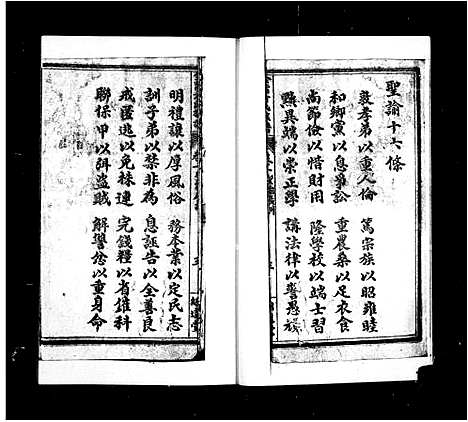 聖諭十六條
敦孝弟以重人倫　篤宗族以昭雍睦
和鄉黨以息爭訟　重農桑以足衣食
尚節儉以惜財用　隆學校以端士習
黜異端以崇正學　講法律以警愚頑
明禮讓以厚風俗　務本業以定民志
訓子弟以禁非為　息誣告以全善良
戒匿逃以免株連　完錢糧以省催科
聯保甲以弭盜賊　解讐忿以重身命